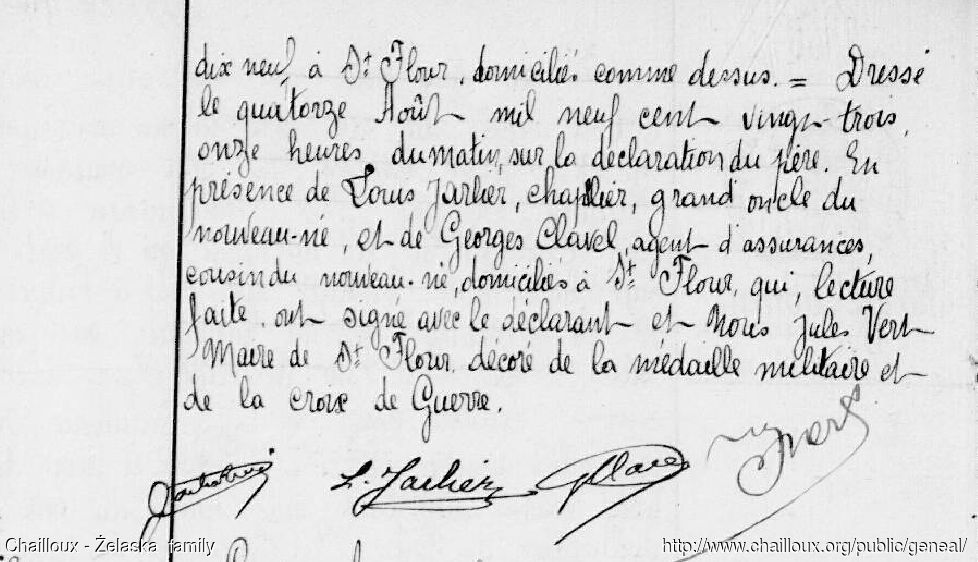 dix neuf, à St Flour, domiciliés comme dessus. = Dressé
le quatorze Août mil neuf cent vingt-trois,
onze heures, du matin, sur la déclaration du père. En
présence de Louis Jarlier, chapelier, grand oncle du
nouveau-né, et de Georges Clavel, agent d'assurances,
cousin du nouveau-né, domiciliés à St Flour, qui, lecture
faite, ont signé avec le déclarant et Nous Jules Vert
Maire de St Flour, décoré de la médaille militaire et
de la croix de Guerre.
L. Jarlier
Chailloux - Želaska family
http://www.chailloux.org/public/geneal/